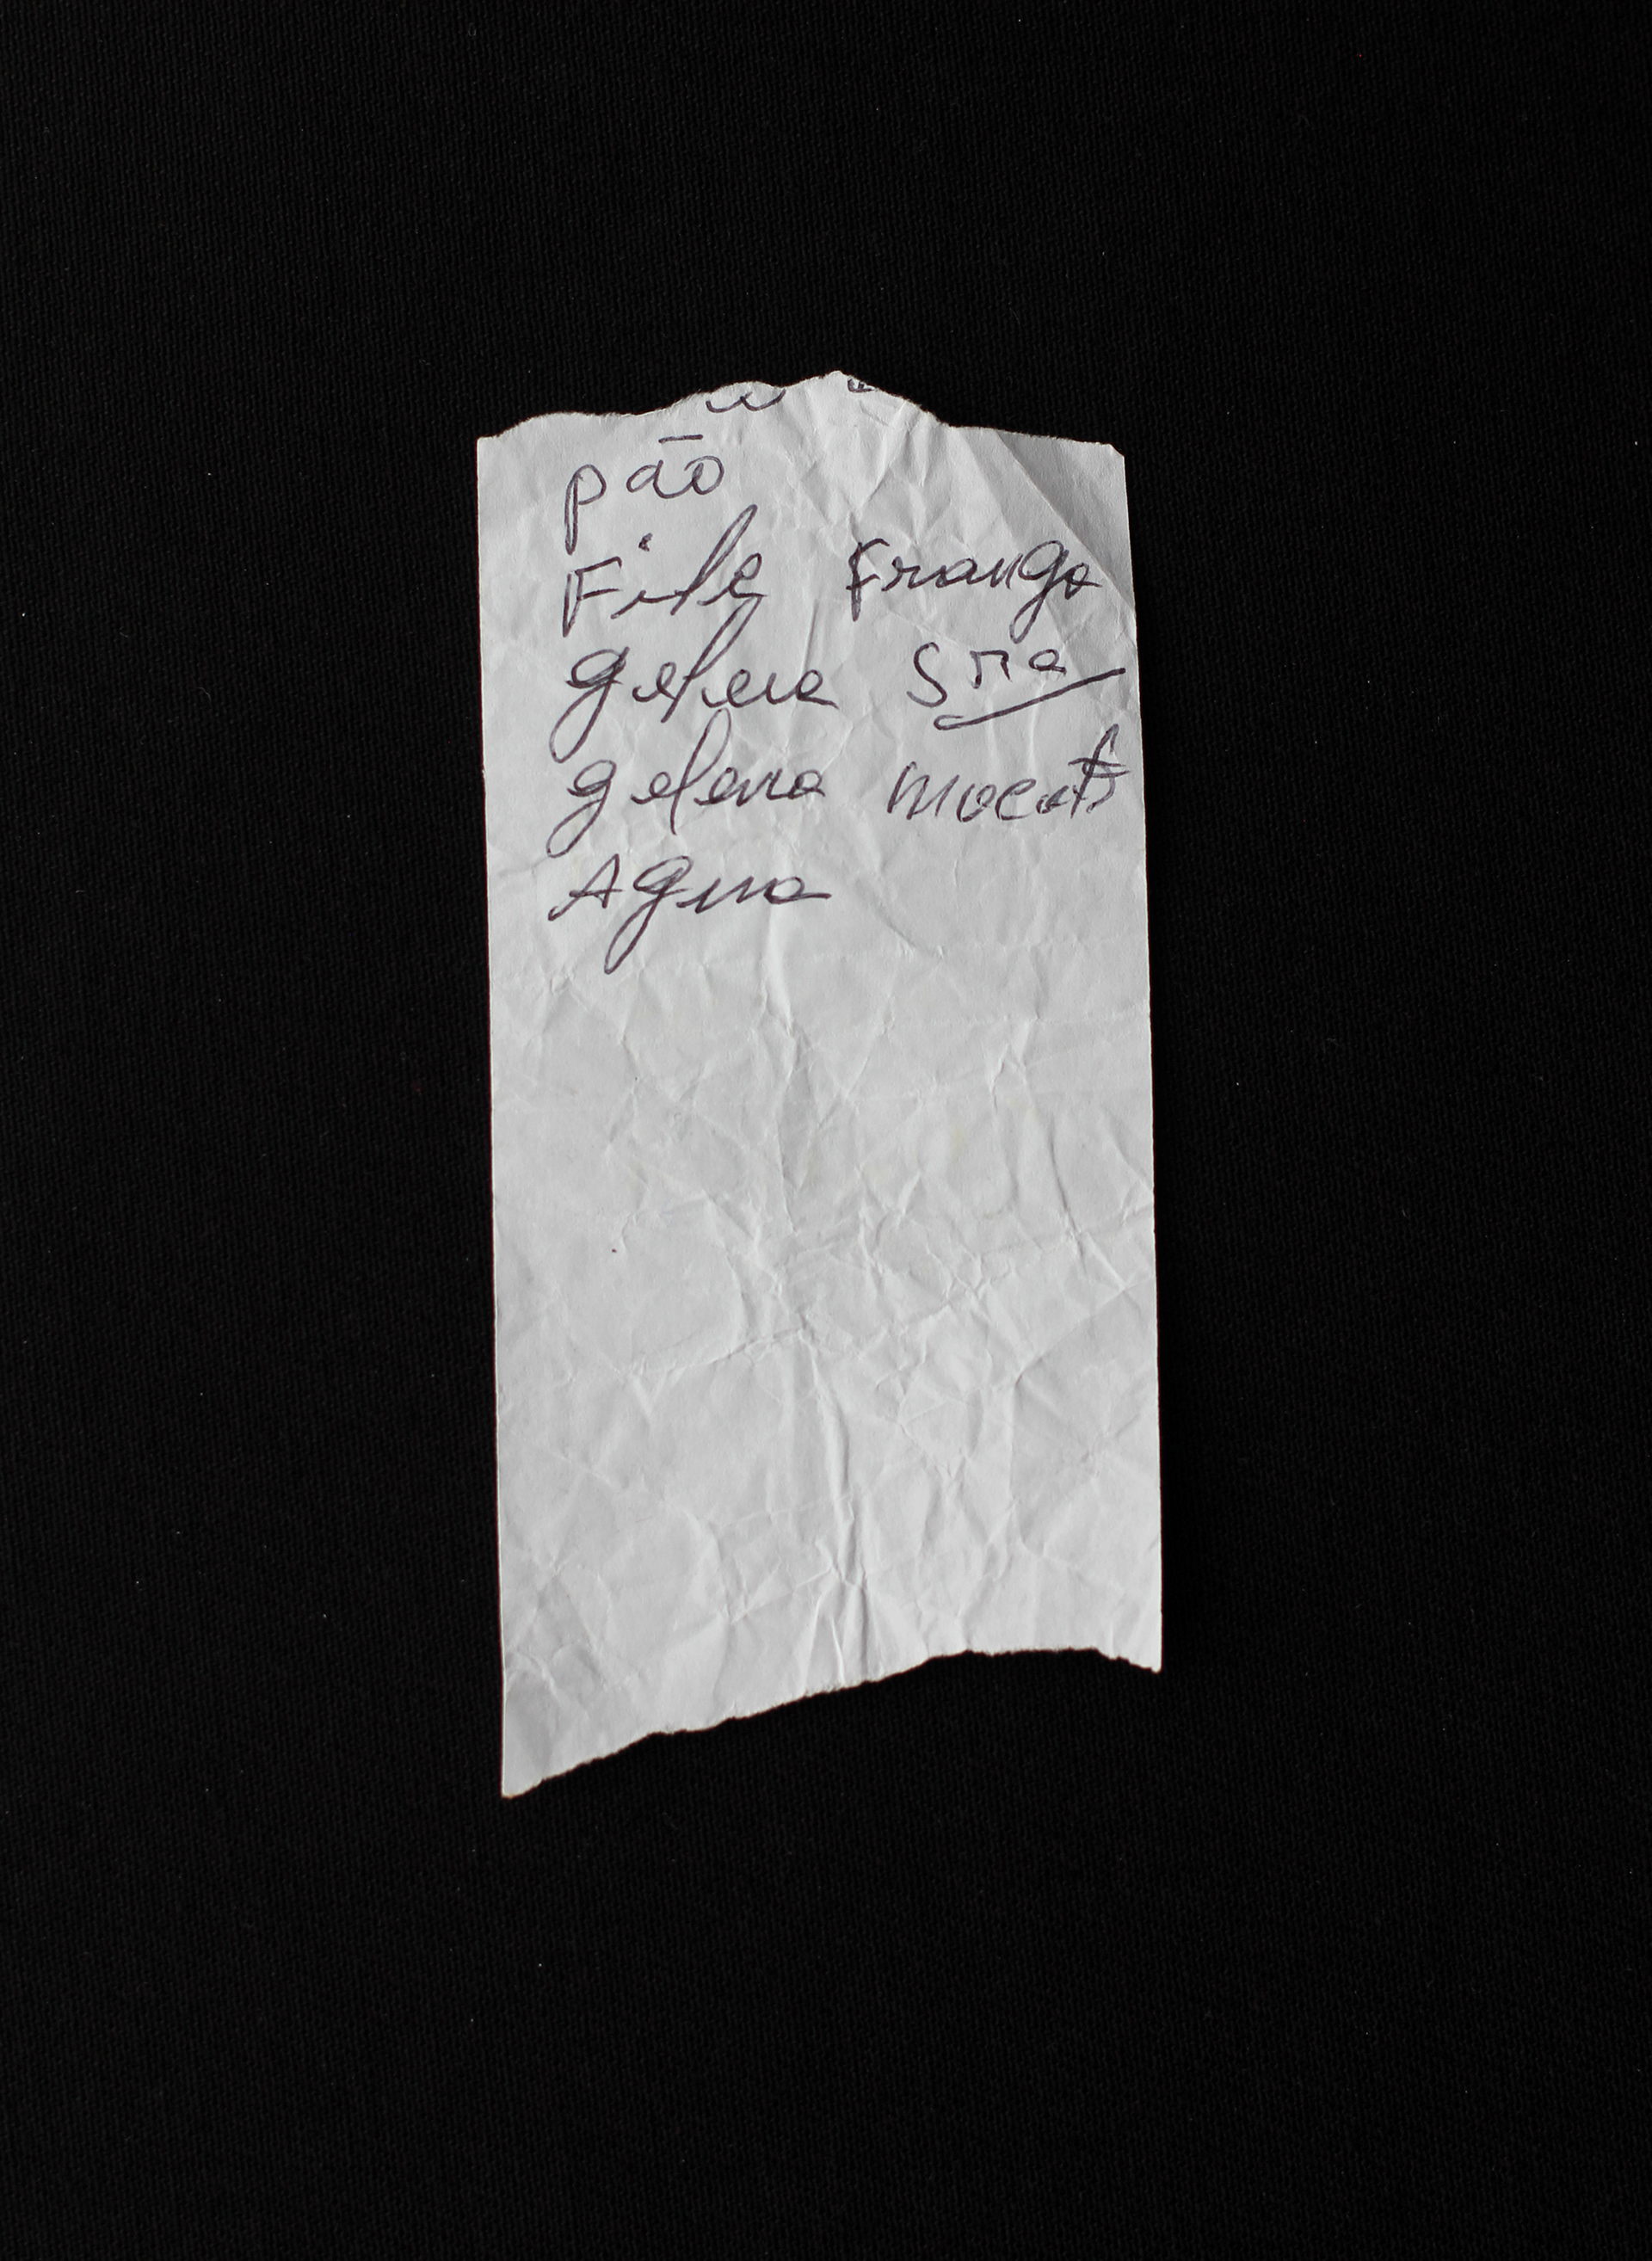 pão
File Frango
geleia Sra
geleia mocotó
Agua